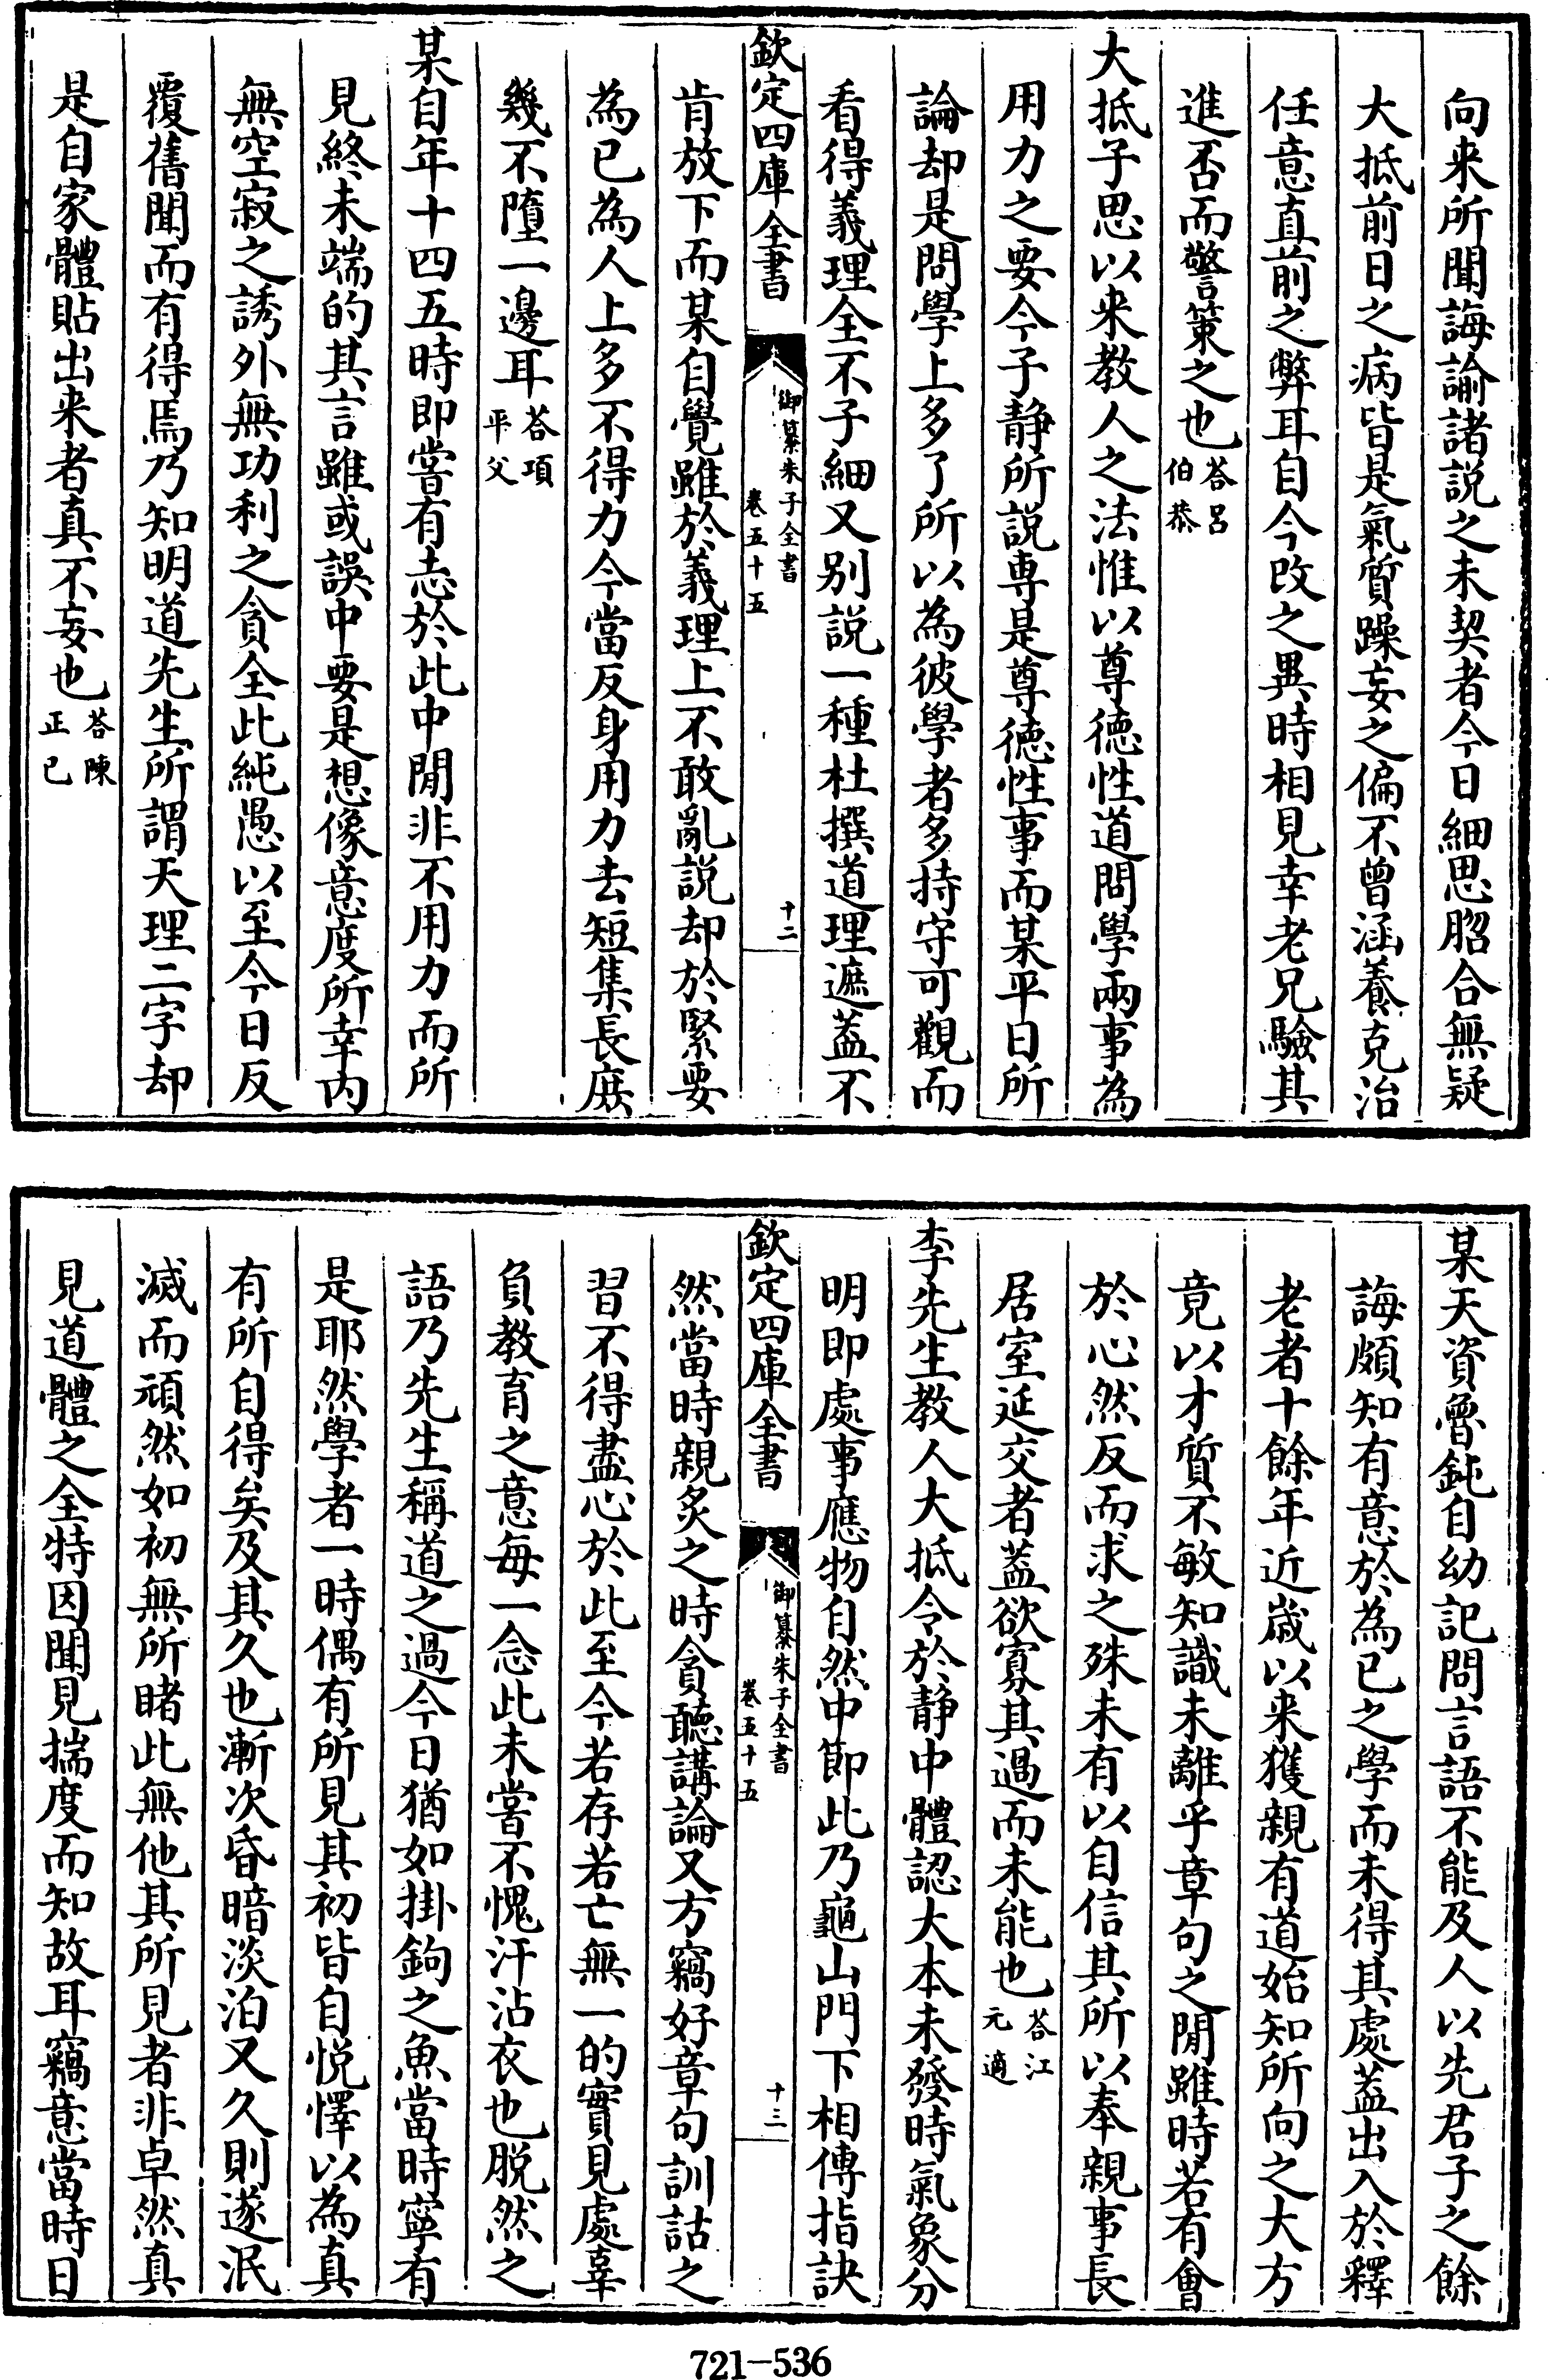 向来所聞誨諭諸説之未契者今日細思脗合無疑
大抵前日之病皆是氣質躁妄之偏不曾涵養克治
任意直前之弊耳自今改之異時相見幸老兄驗其
進否而警策之也答呂伯恭
大抵子思以来教人之法惟以尊德性道問學兩事為
用力之要今子静所説専是尊德性事而某平日所
論却是問學上多了所以為彼學者多持守可觀而
看得義理全不子細又别説一種杜撰道理遮蓋不
欽定四庫全書
御纂朱子全書
卷五十五
十二
肯放下而某自覺雖於義理上不敢亂説却於緊要
為已為人上多不得力今當反身用力去短集長庶
幾不墮一邊耳答項平父
某自年十四五時即嘗有志於此中間非不用力而所
見終未端的其言雖或誤中要是想像意度所幸内
無空寂之誘外無功利之貪全此純愚以至今日反
覆舊聞而有得焉乃知明道先生所謂天理二字却
是自家體貼出来者真不妄也答陳正已
某天資魯鈍自幼記問言語不能及人以先君子之餘
誨頗知有意於為已之學而未得其處蓋出入於釋
老者十餘年近歲以来獲親有道始知所向之大方
竟以才質不敏知識未離乎章句之間雖時若有會
於心然反而求之殊未有以自信其所以奉親事長
居室延交者蓋欲寡其過而未能也答江元適
李先生教人大抵令於静中體認大本未發時氣象分
明即處事應物自然中節此乃龜山門下相傳指訣
欽定四庫全書
御纂朱子全書
卷五十五
十三
然當時親炙之時貪聽講論又方竊好章句訓詁之
習不得盡心於此至今若存若亡無一的實見處辜
負教育之意每一念此未嘗不愧汗沾衣也脱然之
語乃先生稱道之過今日猶如掛鉤之魚當時寧有
是耶然學者一時偶有所見其初皆自悦懌以為真
有所自得矣及其久也漸次昏暗淡泊又久則遂泯
滅而頑然如初無所睹此無他其所見者非卓然真
見道體之全特因聞見揣度而知故耳竊意當時日
721-536